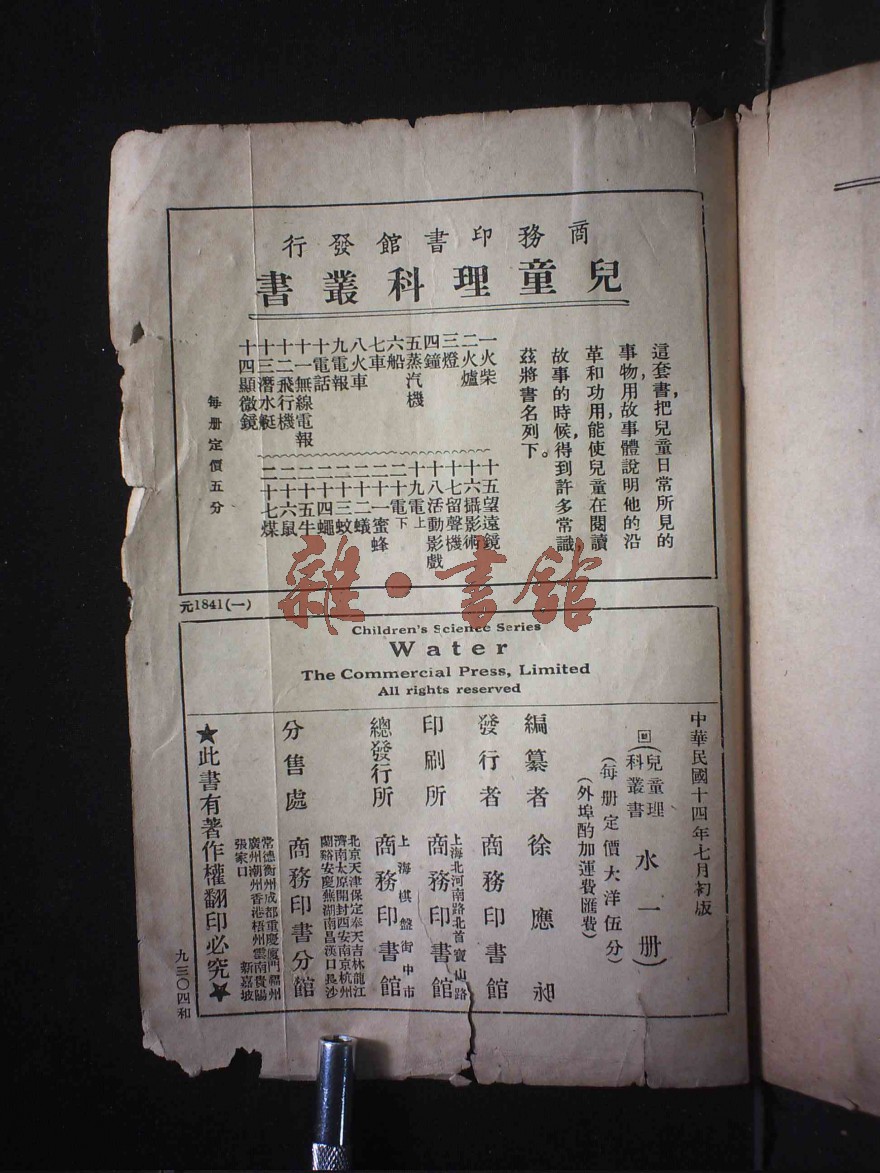 商務印書館發行
兒童理科叢書
這套書，把兒童日常所見的
事物，用故事體說明他的沿
革和功用，能使兒童在閱讀
故事的時候，得到許多常識，
茲將書名列下。
一火柴
二火爐
三燈
四鐘
五蒸汽機
六船
七車
八火車
九電報
十電話
十一無線電報
十二飛行機
十三潛水艇
十四顯微鏡
十五望遠鏡
十六攝影術
十七留聲機
十八活動影戲
十九電上
二十電下
二十一蜜蜂
二十二蟻
二十三蚊
二十四蠅
二十五牛
二十六鼠
二十七煤
每冊定價五分
雜·書館
元1841(一)
Children's Science Series
Water
The Commercial Press, Limited
All rights reserved
中華民國十四年七月初版
(兒童理科叢書 水一册)
(每册定價大洋伍分)
(外埠酌加運費匯費)
編纂者 徐應昶
發行者 商務印書館
印刷所 上海北河南路北首寶山路 商務印書館
總發行所 上海棋盤街中市 商務印書館
分售處 商務印書分館
北京天津保定奉天吉林龍江
濟南太原開封西安南京杭州
蘭谿安慶蕪湖南昌漢口長沙
常德衡州成都重慶廈門福州
廣州潮州香港梧州雲南貴陽
張家口 新嘉坡
★此書有著作權翻印必究★
九三〇四和